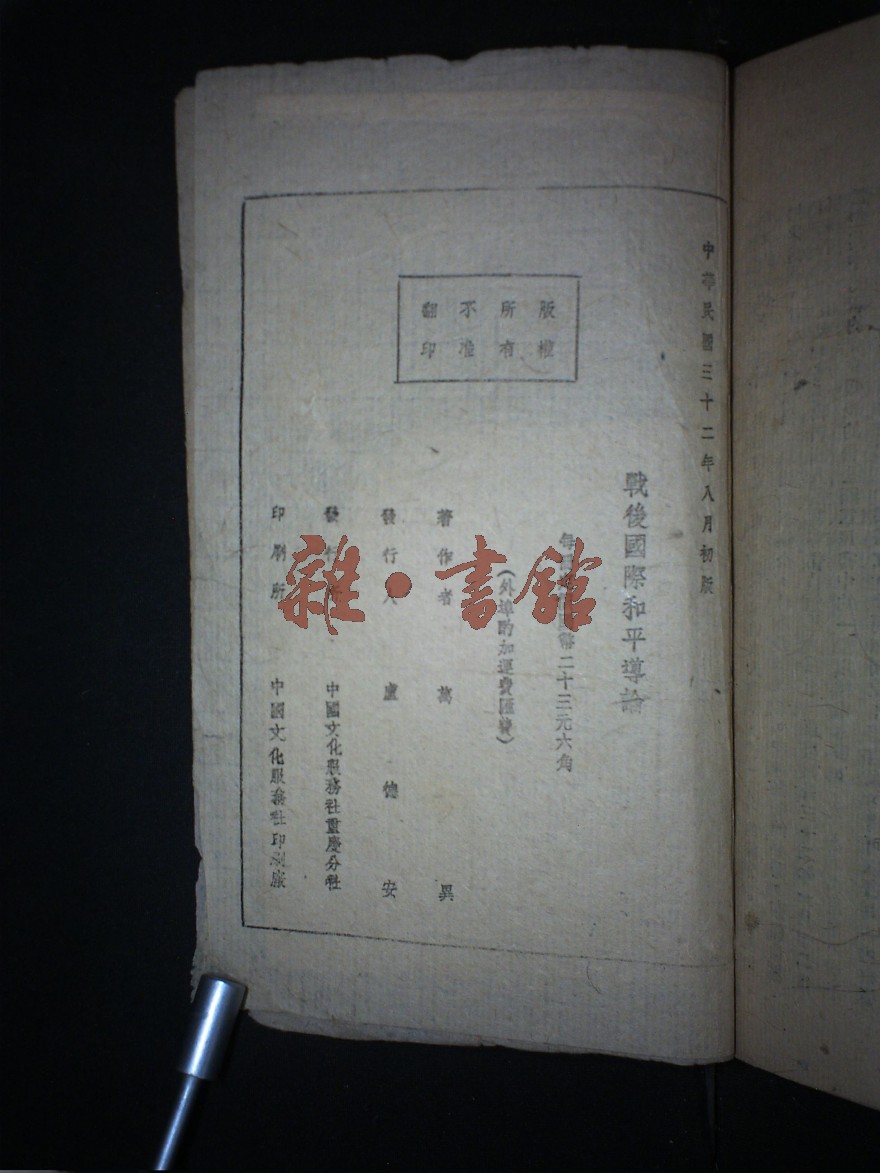 中華民國三十二年八月初版
戰後國際和平導論
每冊 幣二十三元六角
(外埠酌加運費匯費)
版權
所有
不准
翻印
著作者 萬異
發行人 盧德安
發行 中國文化服務社重慶分社
印刷所 中國文化服務社印刷廠
雜·書館